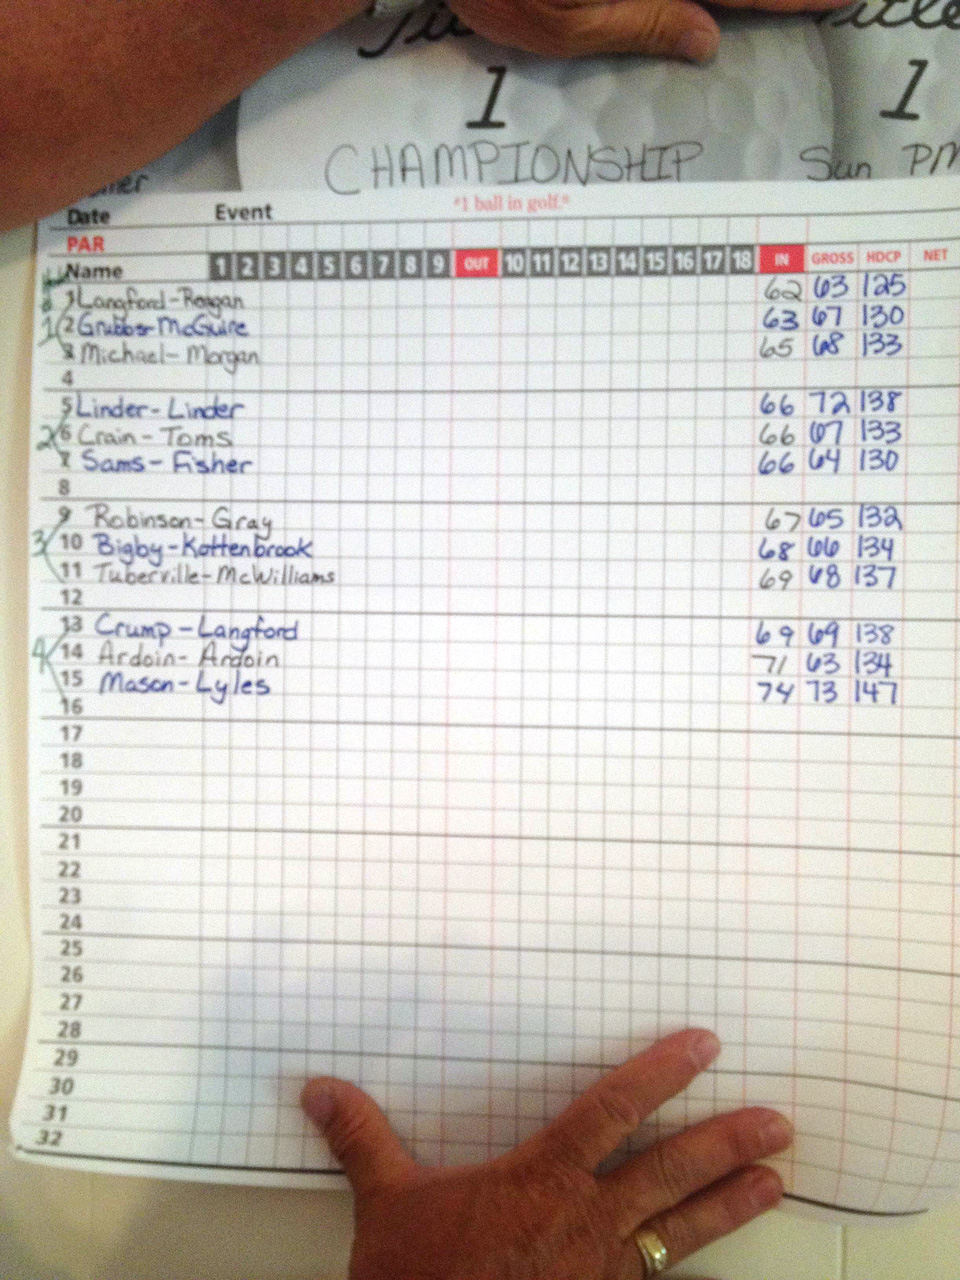 1 1
CHAMPIONSHIP Sun PM
Date Event "1 ball in golf."
PAR
Name 1 2 3 4 5 6 7 8 9 OUT 10 11 12 13 14 15 16 17 18 IN GROSS HDCP NET
1 Langford-Reagan 62 63 125
1 2 Grubbs-McGuire 63 67 130
3 Michael-Morgan 65 68 133
4
5 Linder-Linder 66 72 138
2 6 Crain-Toms 66 67 133
7 Sams-Fisher 66 64 130
8
9 Robinson-Gray 67 65 132
3 10 Bigby-Kottenbrook 68 66 134
11 Tuberville-McWilliams 69 68 137
12
13 Crump-Langford 69 69 138
4 14 Ardoin-Ardoin 71 63 134
15 Mason-Lyles 74 73 147
16
17
18
19
20
21
22
23
24
25
26
27
28
29
30
31
32